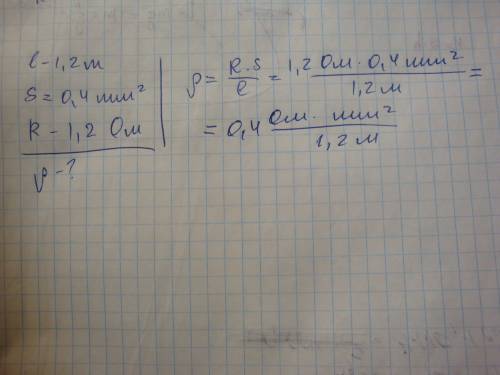 l - 1,2 м
S = 0,4 мм²
R - 1,2 Ом
ρ - ?
ρ = R·S/l = 1,2 Ом · 0,4 мм²/1,2 м =
= 0,4 Ом · мм²/1,2 м